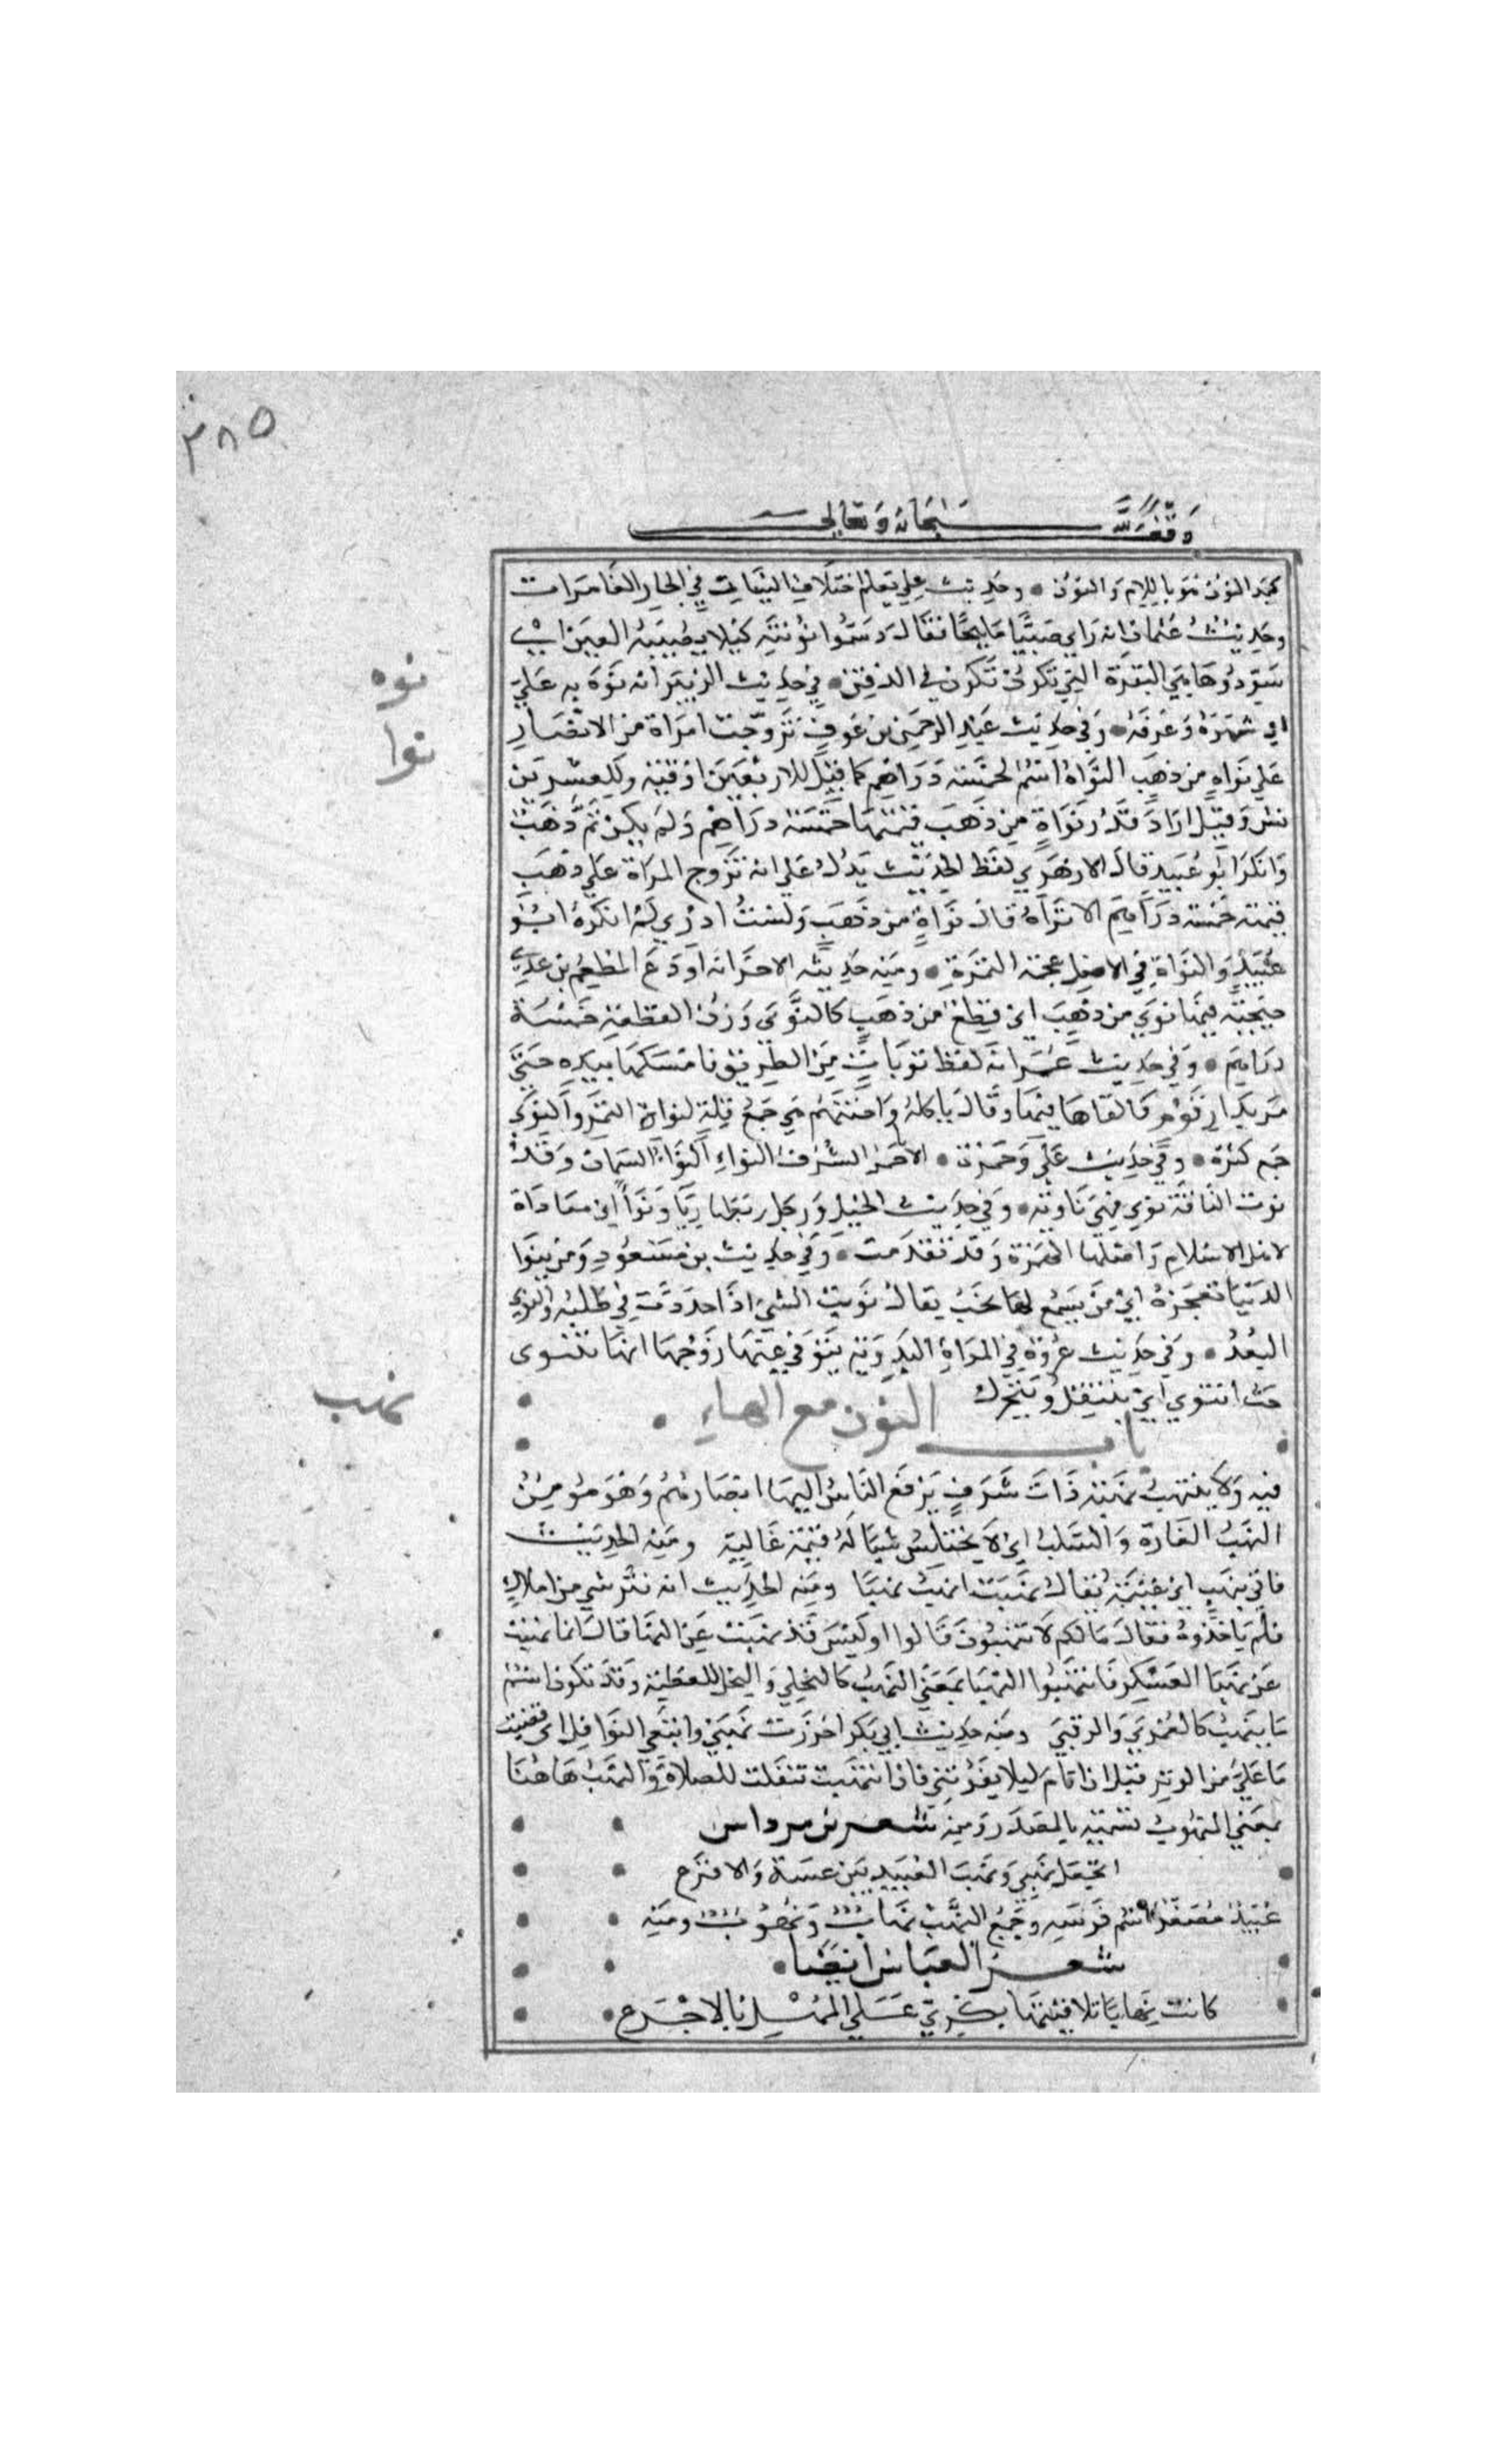 ٣٨٥
وقف لله سبحانه وتعالى
بحد النون نوبا باللام والنون • وحديث علي يعلم اختلاف النينان في البحار الغامرات
وحديث عثمان انه راي صبيا مليحا فقال دسموا نونته كيلا يصيبه العين اي
سودوها هي النقرة التي تكون في الذقن • في حديث الزبير انه نوه به علي
اي شهره وعرفه • وفي حديث عبد الرحمن بن عوف تزوجت امراة من الانصار
علي نواه من ذهب النواة اسم لخمسة دراهم كما قيل للاربعين اوقيه وللعشرين
نش وقيل اراد قدر نواة من ذهب قيمتها خمسة دراهم ولم يكن ثم ذهب
وانكر ابو عبيد قال الازهري لفظ الحديث يدل علي انه تزوج المراة علي ذهب
قيمته خمسة دراهم الا تراه قال نواة من ذهب ولست ادري لم انكره ابو
عبيد والنواة في الاصل عجمة التمرة • ومنه حديثه الاخر انه اودع المطعم بن عدي
جبجبة فيها نوي من ذهب اي قطع من ذهب كالنوي وزن القطعة خمسة
دراهم • وفي حديث عمر انه لقط نويات من الطريق فامسكها بيده حتي
مر بدار قوم فالقاها فيها وقال ياكله داجنتهم هي جمع قلة لنواة التمر والنوي
جمع كثرة • وفي حديث علي وحمزة • الا حمز للشرف النواء النواء السمان وقد
نوت الناقة تنوي فهي ناوية • وفي حديث الخيل ورجل ربطها ريا ونواء اي معاداة
لاهل الاسلام واصلها الهمزة وقد تقدمت • وفي حديث بن مسعود ومن ينوا
الدنيا تعجزه اي من يسع لها يخب يقال نويت الشي اذا جددت في طلبه والنوي
البعد • وفي حديث عروة في المراة البدوية يتوفي عنها زوجها انها تنتوي
حيث انتوي اي تنتقل وتتحرك
باب النون مع الهاء •
فيه ولا ينتهب نهبة ذات شرف يرفع الناس اليها ابصارهم وهو مؤمن
النهب الغارة والسلب اي لا يختلس شيا له قيمة غالية ومنه الحديث
فاتي بنهب اي غنيمة يقال نهبت انهب نهبا ومنه الحديث انه نثر شي من املاك
فلم ياخذوه فقال مالكم لا تنتهبون قالوا اوليس قد نهيت عن النهبا قال انما نهيت
عن نهبا العسكر فانتهبوا النهبا بمعني النهب كالنحلي والنحل للعطية وقد تكون اسم
ما ينهب كالعمري والرقبي ومنه حديث ابي بكر احرزت نهبي وابتغي النوافل اي قضيت
ما علي من الوتر قبل ان انام ليلا يفوتني فان انتبهت تنفلت للصلاة والنهب هاهنا
بمعني المنهوب تسمية بالمصدر ومنه شعر بن مرداس
اتجعل نهبي ونهب العبيد بين عيينة والاقرع
عبيد مصغر اسم فرسه وجمع النهب نهاب ونهوب ومنه
شعر العباس ايضا •
كانت نهابا تلافيتها بكري علي المهر بالاجرع •
نوه
نوا
نهب